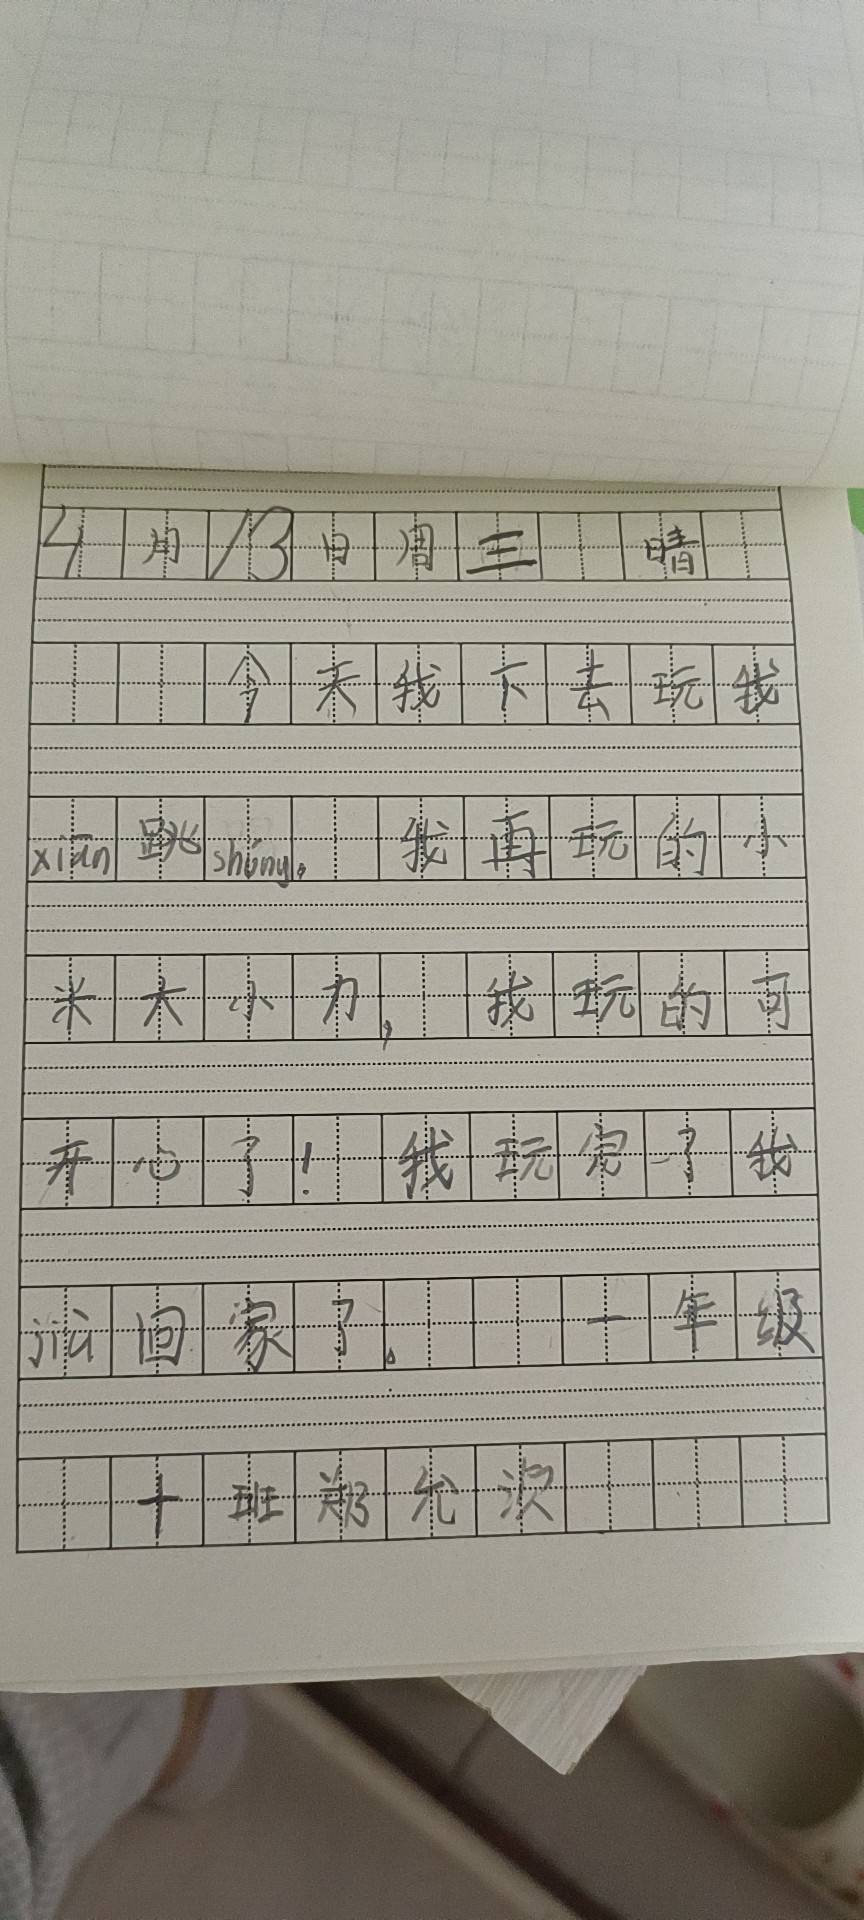 4月13日周三 晴
今天我下去玩我
xiān跳shéng。我再玩的小
米大小力,我玩的可
开心了!我玩完了我
jiù回家了。 一年级
十班郑允